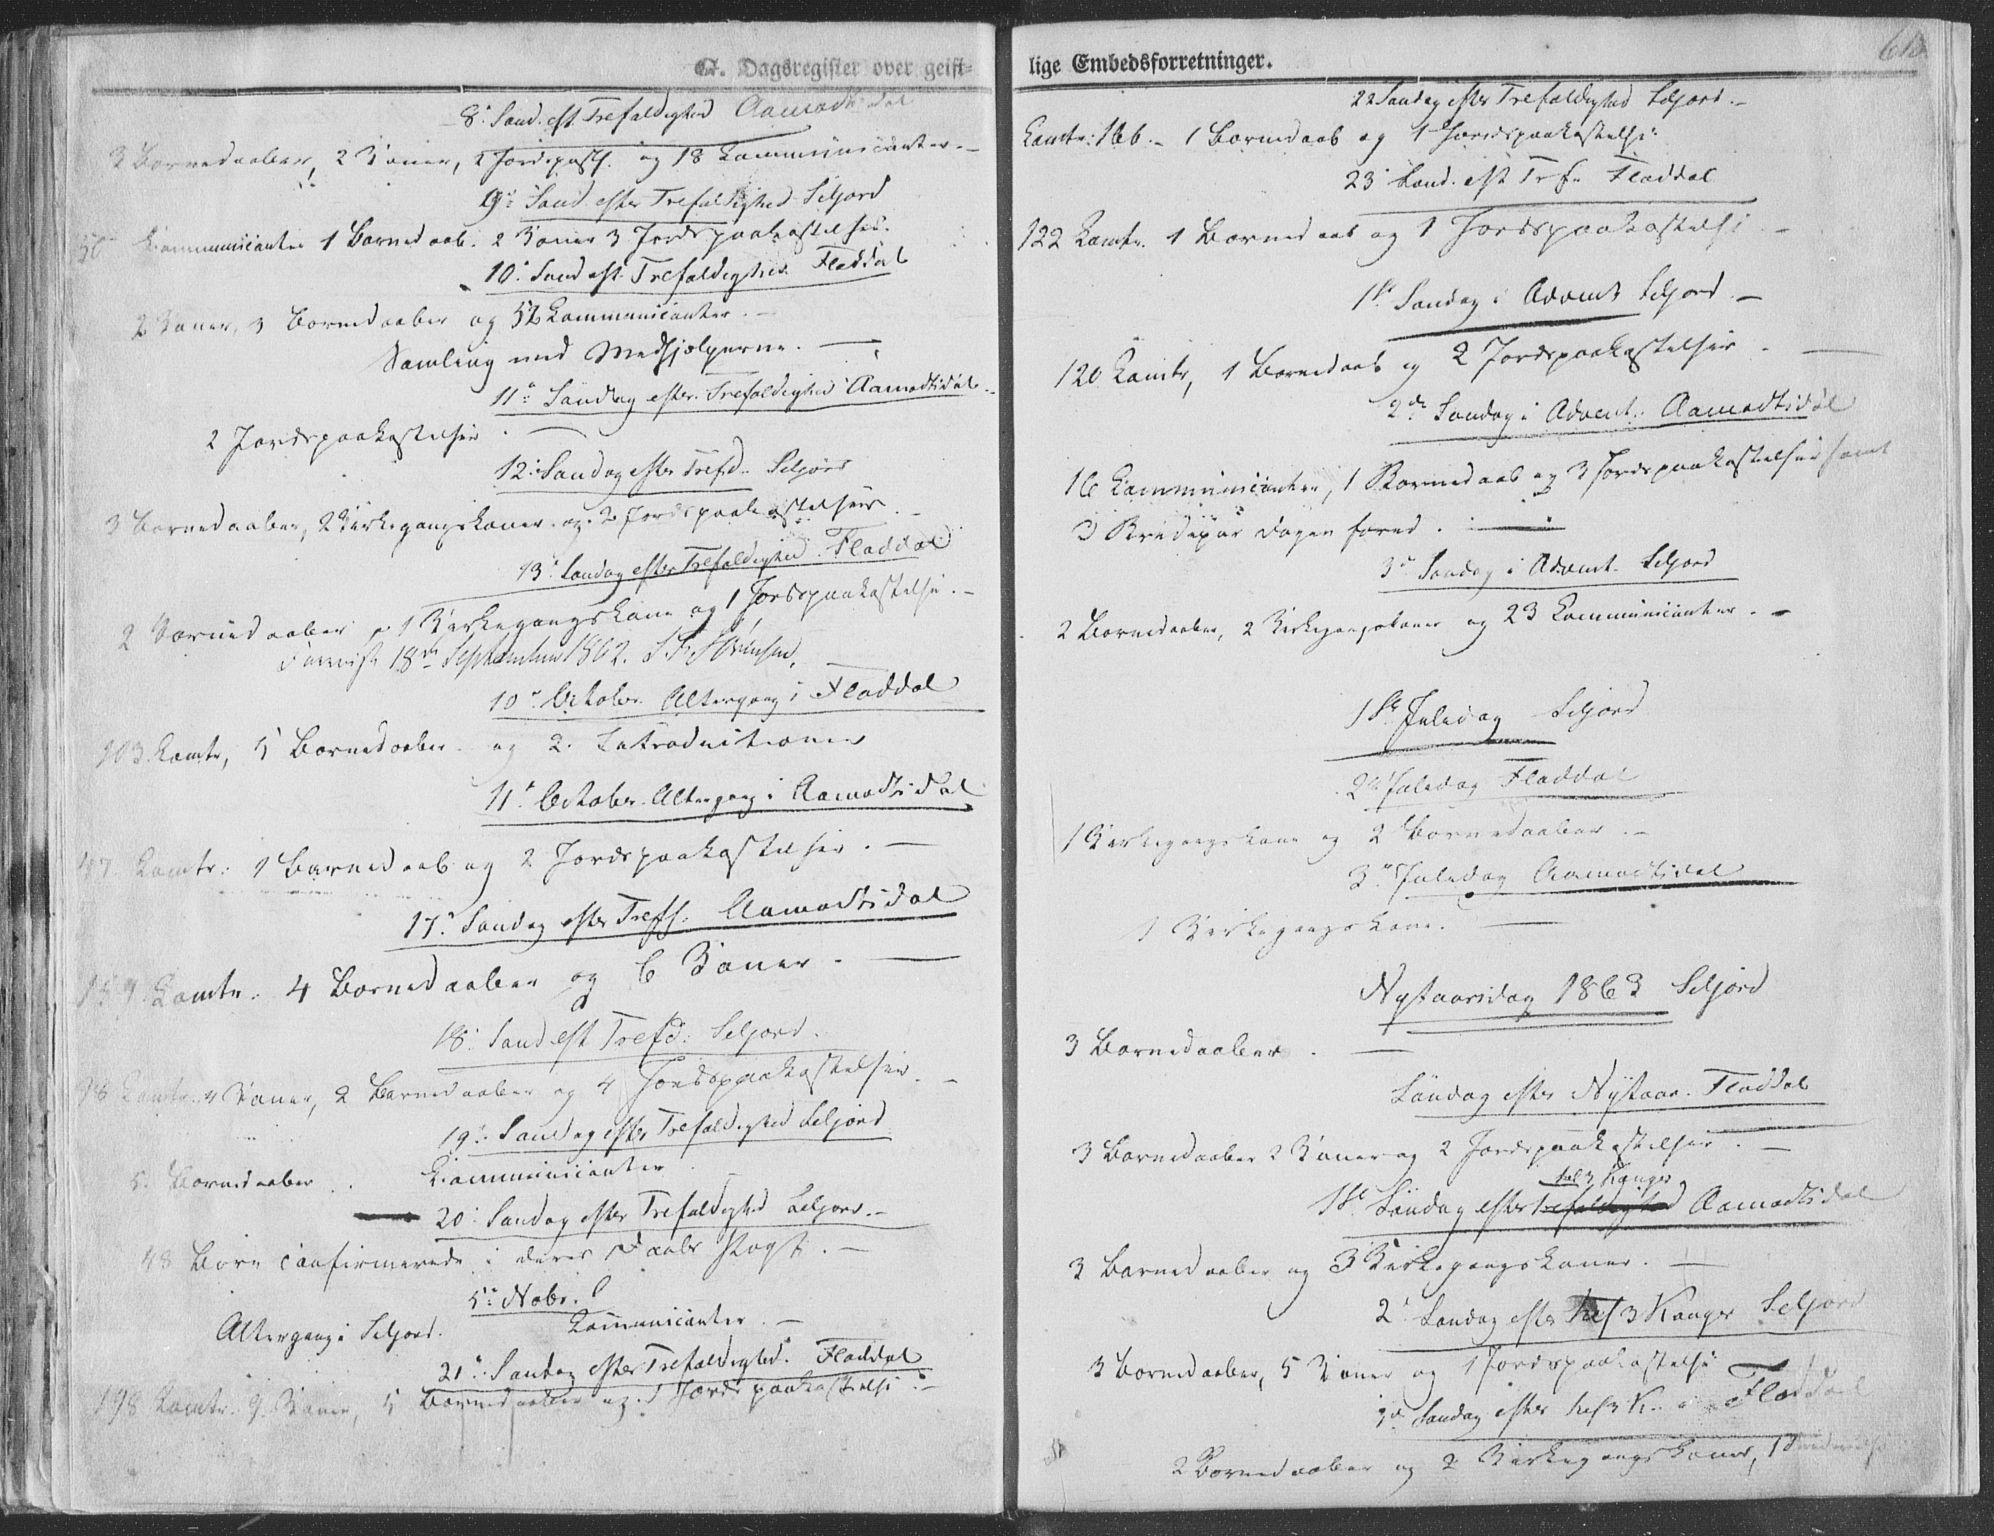 G. Dagsregister over geist-
8de Sønd. eft. Trefoldighed Aamodtsdal
3 Barnedaaber, 2 Koner, 2 Jordspask. og 18 Kommunicanter. –
9de Sønd. efter Trefoldighed Seljord
Kommunicanter 1 Barnedaab. 2 Koner 3 Jordspaakastelser.
10de Sønd. eft. Trefoldighed Fladdal
2 Koner, 3 Barnedaaber og 52 Kommunicanter. –
Samling med Medhjelperne. –
11te Søndag efter Trefoldighed Aamodtsdal –
2 Jordspaakastelser –
12te Søndag efter Trefd. Seljord
3 Barnedaaber, 2 Kirkegangskoner og 2 Jordspaakastelser. –
13de Søndag efter Trefoldighed Fladdal
2 Barnedaaber, 1 Kirkegangskone og 1 Jordspaakastelse. –
18de September 1862.
10de October Altergang i Fladdal
103 Komtr, 5 Barnedaaber og 2 Introductioner
11te October Altergang i Aamodtsdal
Komtr. 1 Barnedaab og 2 Jordspaakastelser. –
17de Søndag efter Tref. Aamodtsdal
Komtr. 4 Barnedaaber og 6 Koner. –
18de Sønd. eft. Trefd. Seljord.
Komtr. 4 Koner, 2 Barnedaaber og 4 Jordspaakastelser. –
19de Søndag efter Trefoldighed Seljord
5 Barnedaaber . Kommunicanter
20de Søndag efter Trefoldighed Seljord. –
48 Børn confirmerede i deres Daabs Pagt. –
5te Nobr.
Altergang i Seljord. Kommunicanter. –
21de Søndag efter Trefoldighed. Fladdal
198 Komtr. 9 Koner, 5 Barnedaaber og 1 Jordspaakastelse. –
lige Embedsforretninger.
22 Søndag efter Trefoldighed Seljord. –
Komtr. 166. – 1 Barnedaab og 1 Jordspaakastelse
23de Sønd. eft. Trf. Fladdal
122 Komtr. 1 Barnedaab og 1 Jordspaakastelse –
1ste Søndag i Advent Seljord. –
120 Komtr, 1 Barnedaab og 2 Jordspaakastelser. –
2den Søndag i Advent. Aamodtsdal
16 Kommunicanter, 1 Barnedaab og 3 Jordspaakastelser samt
3 Brudepar Dagen forud. –
3de Søndag i Advent. Seljord
2 Barnedaaber, 2 Kirkegangskoner og 23 Kommunicanter. –
1ste Juledag Seljord
2den Juledag Fladdal
1 Kirkegangskone og 2 Barnedaaber. –
3die Juledag Aamodtsdal
1 Kirkegangskone. –
Nytaarsdag 1863 Seljord
3 Barnedaaber. –
Søndag efter Nytaar. Fladdal
3 Barnedaaber 2 Koner og 2 Jordspaakastelser. –
hel 3 Konger
1ste Søndag efter Trefoldighed Aamodtsdal
3 Barnedaaber og 3 Kirkegangskoner. –
2de Søndag efter hel 3 Konger Seljord
3 Barnedaaber, 5 Koner og 1 Jordspaakastelse
3de Søndag efter hel 3 K. Fladdal
2 Barnedaaber og 2 Kirkegangskoner, 1